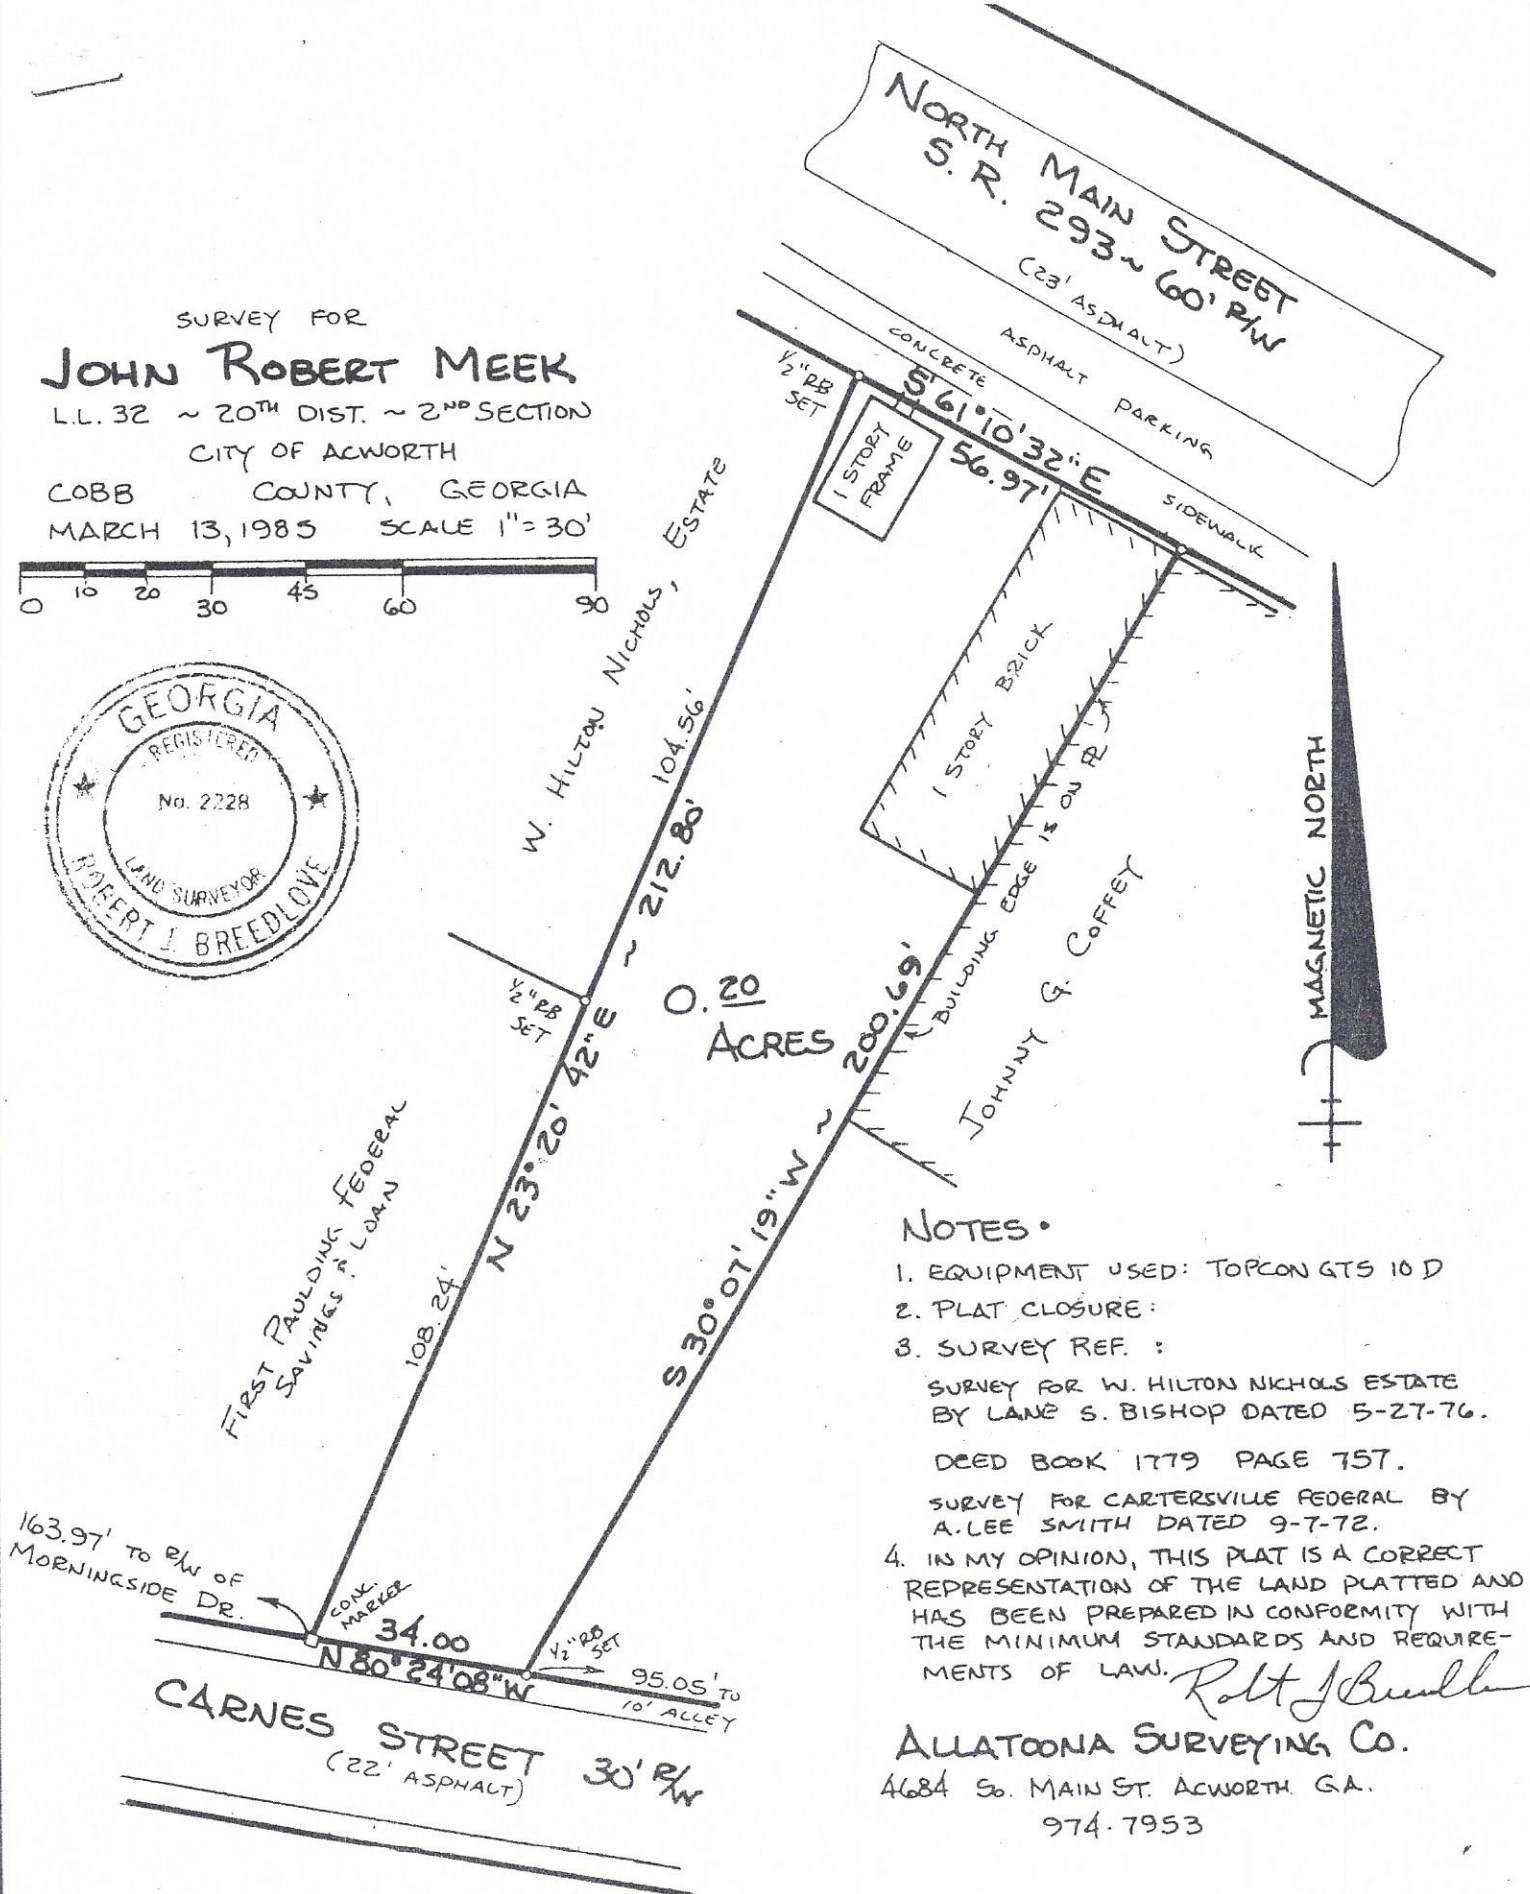 NORTH MAIN STREET
S. R. 293 ~ 60' R/W
(23' ASPHALT)
ASPHALT PARKING
CONCRETE SIDEWALK
SURVEY FOR
JOHN ROBERT MEEK
L.L. 32 ~ 20TH DIST. ~ 2ND SECTION
CITY OF ACWORTH
COBB COUNTY, GEORGIA
MARCH 13, 1985 SCALE 1" = 30'
0 10 20 30 45 60 90
GEORGIA
REGISTERED
No. 2228
LAND SURVEYOR
ROBERT J. BREEDLOVE
1/2" RB
SET
S 61° 10' 32" E
56.97'
1 STORY
FRAME
W. HILTON NICHOLS, ESTATE
104.56'
1 STORY BRICK
BUILDING EDGE IS ON PL
JOHNNY G. COFFEY
MAGNETIC NORTH
N 23° 20' 42" E ~ 212.80'
1/2" RB
SET
0.20
ACRES
S 30° 07' 19" W ~ 200.69'
FIRST PAULDING FEDERAL
SAVINGS & LOAN
108.24'
163.97' TO R/W OF
MORNINGSIDE DR.
CONC.
MARKER
34.00
N 80° 24' 08" W
1/2" RB
SET
95.05' TO
10' ALLEY
CARNES STREET 30' R/W
(22' ASPHALT)
NOTES.
1. EQUIPMENT USED: TOPCON GTS 10 D
2. PLAT CLOSURE:
3. SURVEY REF. :
SURVEY FOR W. HILTON NICHOLS ESTATE
BY LANE S. BISHOP DATED 5-27-76.
DEED BOOK 1779 PAGE 757.
SURVEY FOR CARTERSVILLE FEDERAL BY
A. LEE SMITH DATED 9-7-72.
4. IN MY OPINION, THIS PLAT IS A CORRECT
REPRESENTATION OF THE LAND PLATTED AND
HAS BEEN PREPARED IN CONFORMITY WITH
THE MINIMUM STANDARDS AND REQUIRE-
MENTS OF LAW.
ALLATOONA SURVEYING CO.
4684 So. MAIN ST. ACWORTH GA.
974-7953